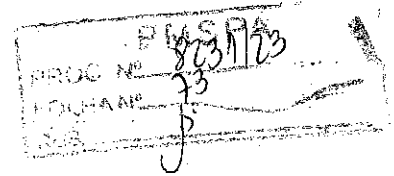 PMSPA
PROC Nº 8231/23
FOLHA Nº 73